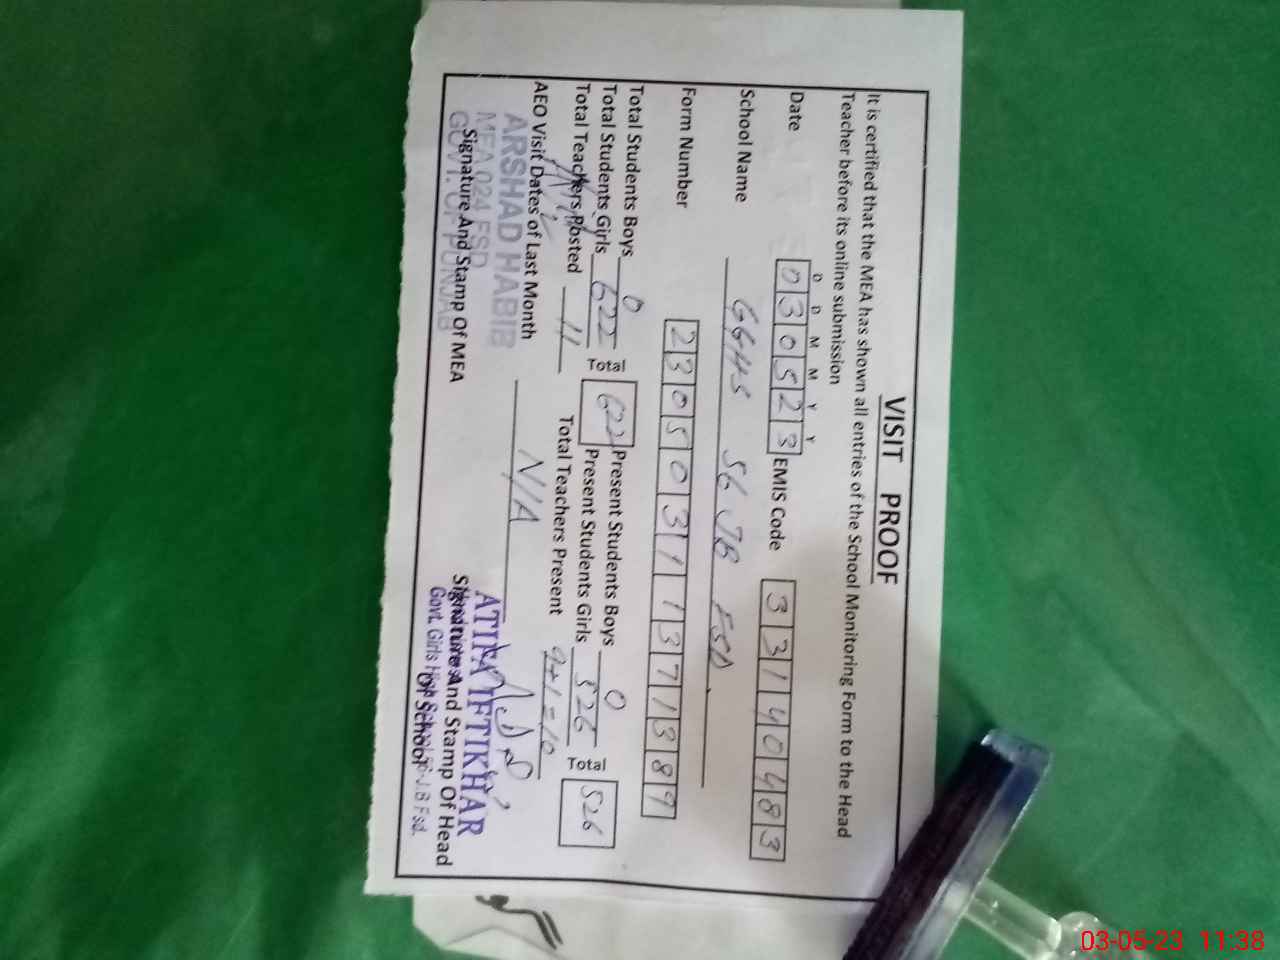 VISIT PROOF
It is certified that the MEA has shown all entries of the School Monitoring Form to the Head
Teacher before its online submission
D D M M Y Y
Date 030523 EMIS Code 33140483
School Name GGHS 56 JB FSD.
Form Number 23050311371389
Total Students Boys 0 Present Students Boys 0
Total 622 Total 526
Total Students Girls 622 Present Students Girls 526
Total Teachers Posted 11 Total Teachers Present 9+1=10
AEO Visit Dates of Last Month N/A
ARSHAD HABIB
MEA 024 FSD
GOVT. OF PUNJAB
Signature And Stamp Of MEA
ATIFA IFTIKHAR
Signature And Stamp Of Head
Of School
Govt. Girls High School J.B Fsd.
03-05-23 11:38